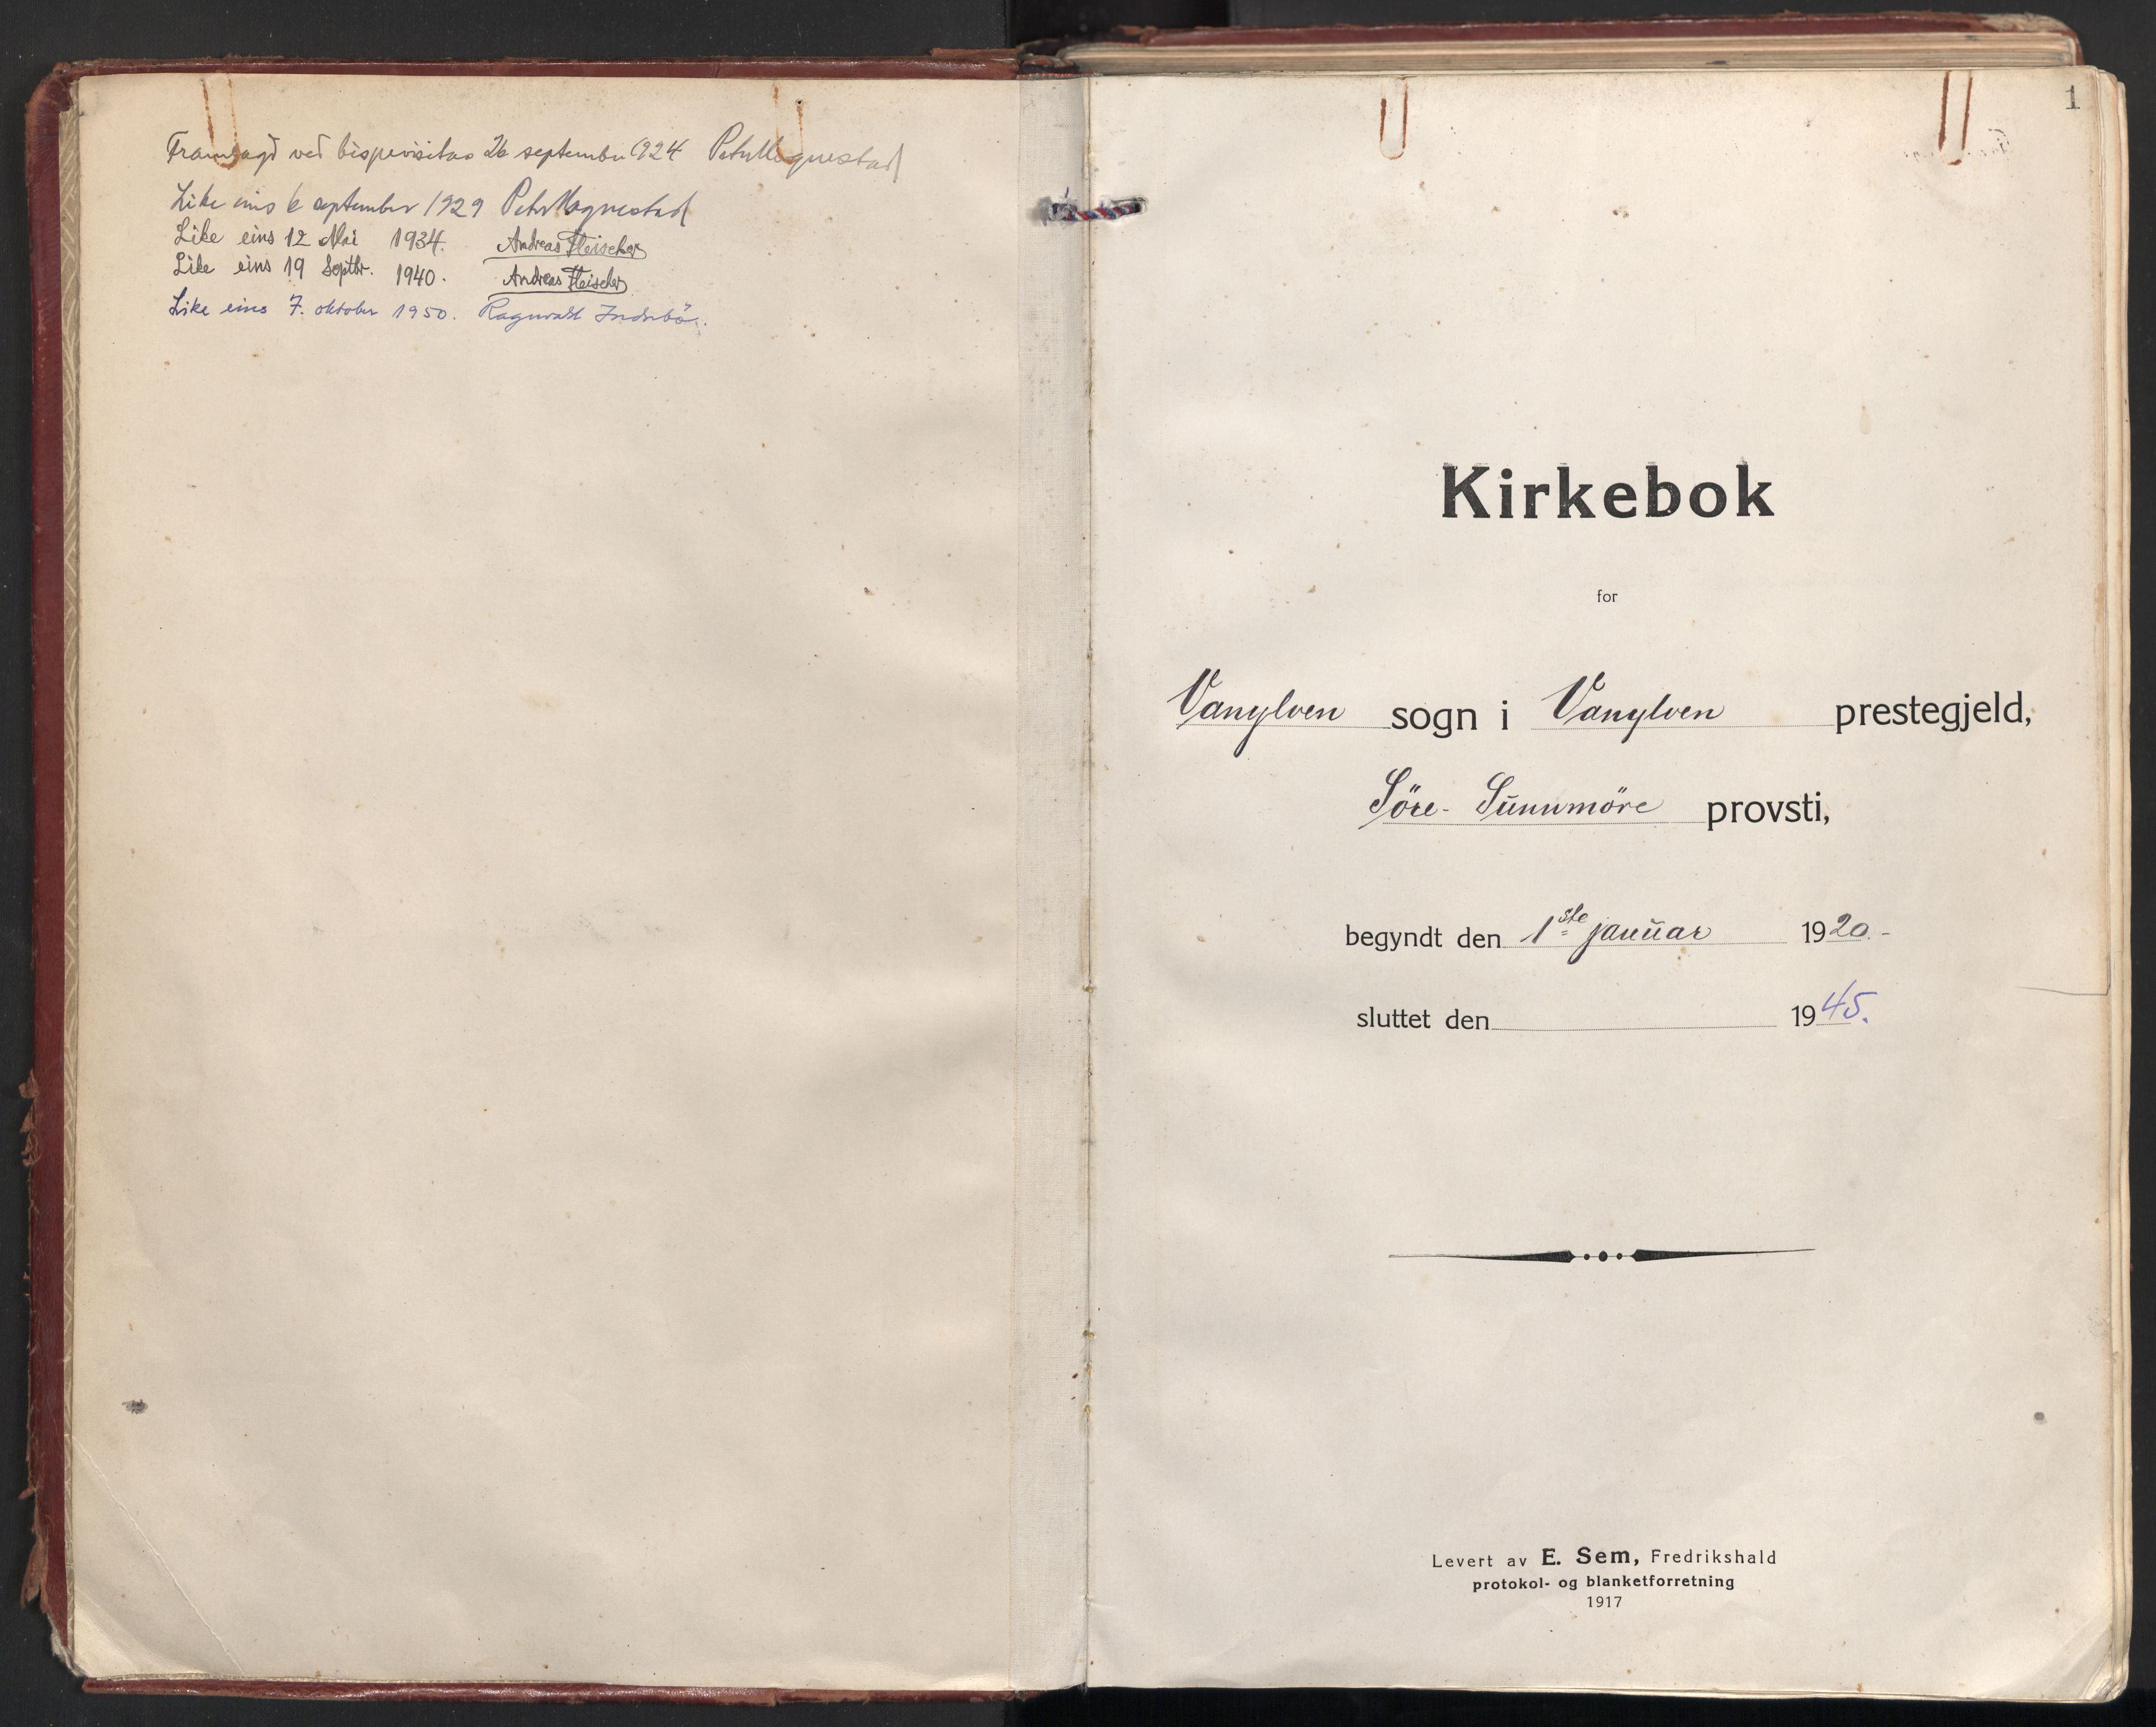 Framlagd ved bispevisitas 26 september 1924 Peter Hognestad
Like eins 6 september 1929 Peter Hognestad
Like eins 12 Mai 1934. Andreas Fleischer
Like eins 19 Septbr. 1940. Andreas Fleischer
Like eins 7. oktober 1950. Ragnvald Indrebö.
1
Kirkebok
for
Vanylven sogn i Vanylven prestegjeld,
Söre- Sunnmöre provsti,
begyndt den 1ste januar 1920.-
sluttet den 1945.
Levert av E. Sem, Fredrikshald
protokol- og blanketforretning
1917